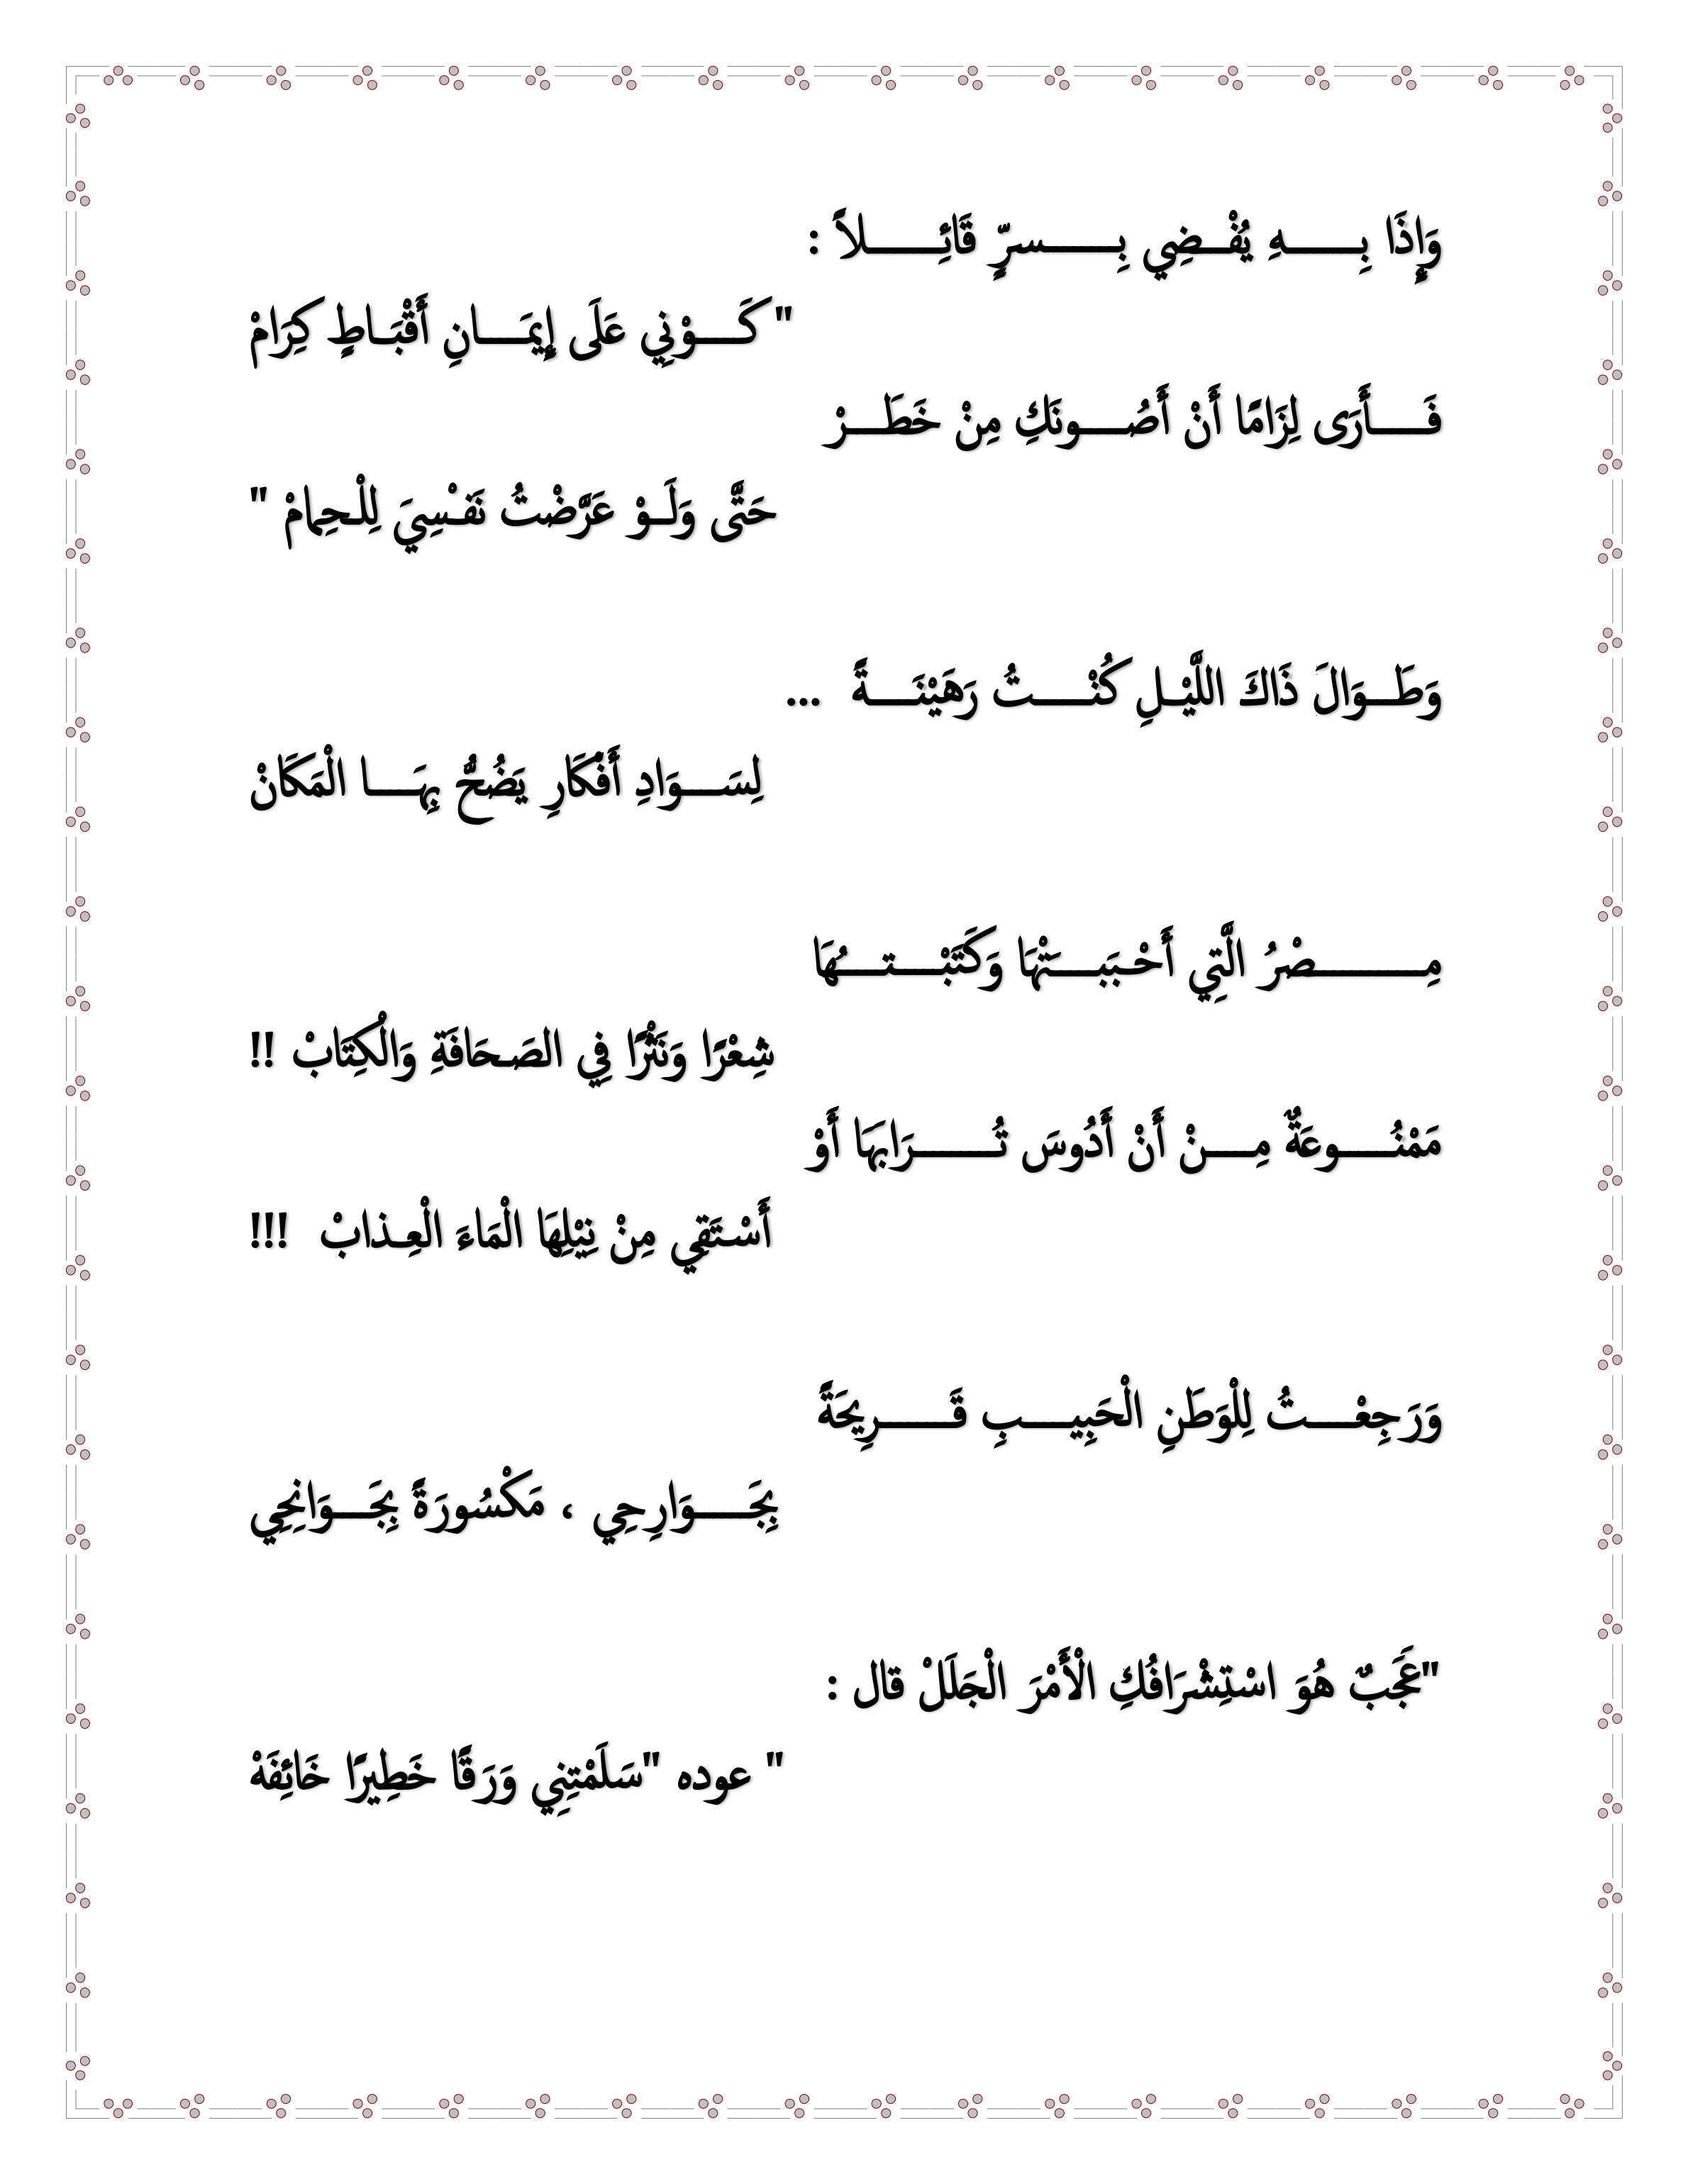 وَإِذَا بِــــــهِ يُفْــضِي بِـــــــسرٍّ قَائِـــــــلاً :
" كَــــوْنِي عَلَى إِيمَــــانِ أَقْبَــاطٍ كِرَامْ
فَـــــأَرَى لِزَامًا أَنْ أَصُــــونَكِ مِنْ خَطَـــرْ
حَتَّى وَلَــوْ عَرَّضْتُ نَفْـسِيَ لِلْـحِمامْ "
وَطَـــوَالَ ذَاكَ اللَّيْـلِ كُنْـــــتُ رَهَيْنَــــةً ...
لِسَــــوَادِ أَفْكَارِ يَضُحُّ بِهَــــا الْمَكَانْ
مِـــــــــصْرُ الَّتِي أَحْـبَبــــَتْهَا وَكَتَبْــــتــــُهَا
شِعْرًا وَنَثْرًا فِي الصَـحَافَةِ وَالْكِتَابْ !!
مَمْنُـــــوعَةٌ مِــــنْ أَنْ أَدُوسَ تُــــــــرَابهَا أَوْ
أَسْـتَقِي مِنْ نِيْلِهَا الْمَاءَ الْعِـذابْ !!!
وَرَجِعْــــتُ لِلْوَطَنِ الْحَبِيــــبِ قَــــــــرِيحَةً
بِجَـــــوَارِحِي ، مَكْسُورَةً بِجَـــوَانِحِي
"عَجَبٌ هُوَ اسْتِشْرَافُكِ الْأَمْرَ الْجَلَلْ قال :
" عوده "سَلَمْتِنِي وَرَقًا خَطِيرًا خَائِفَهْ